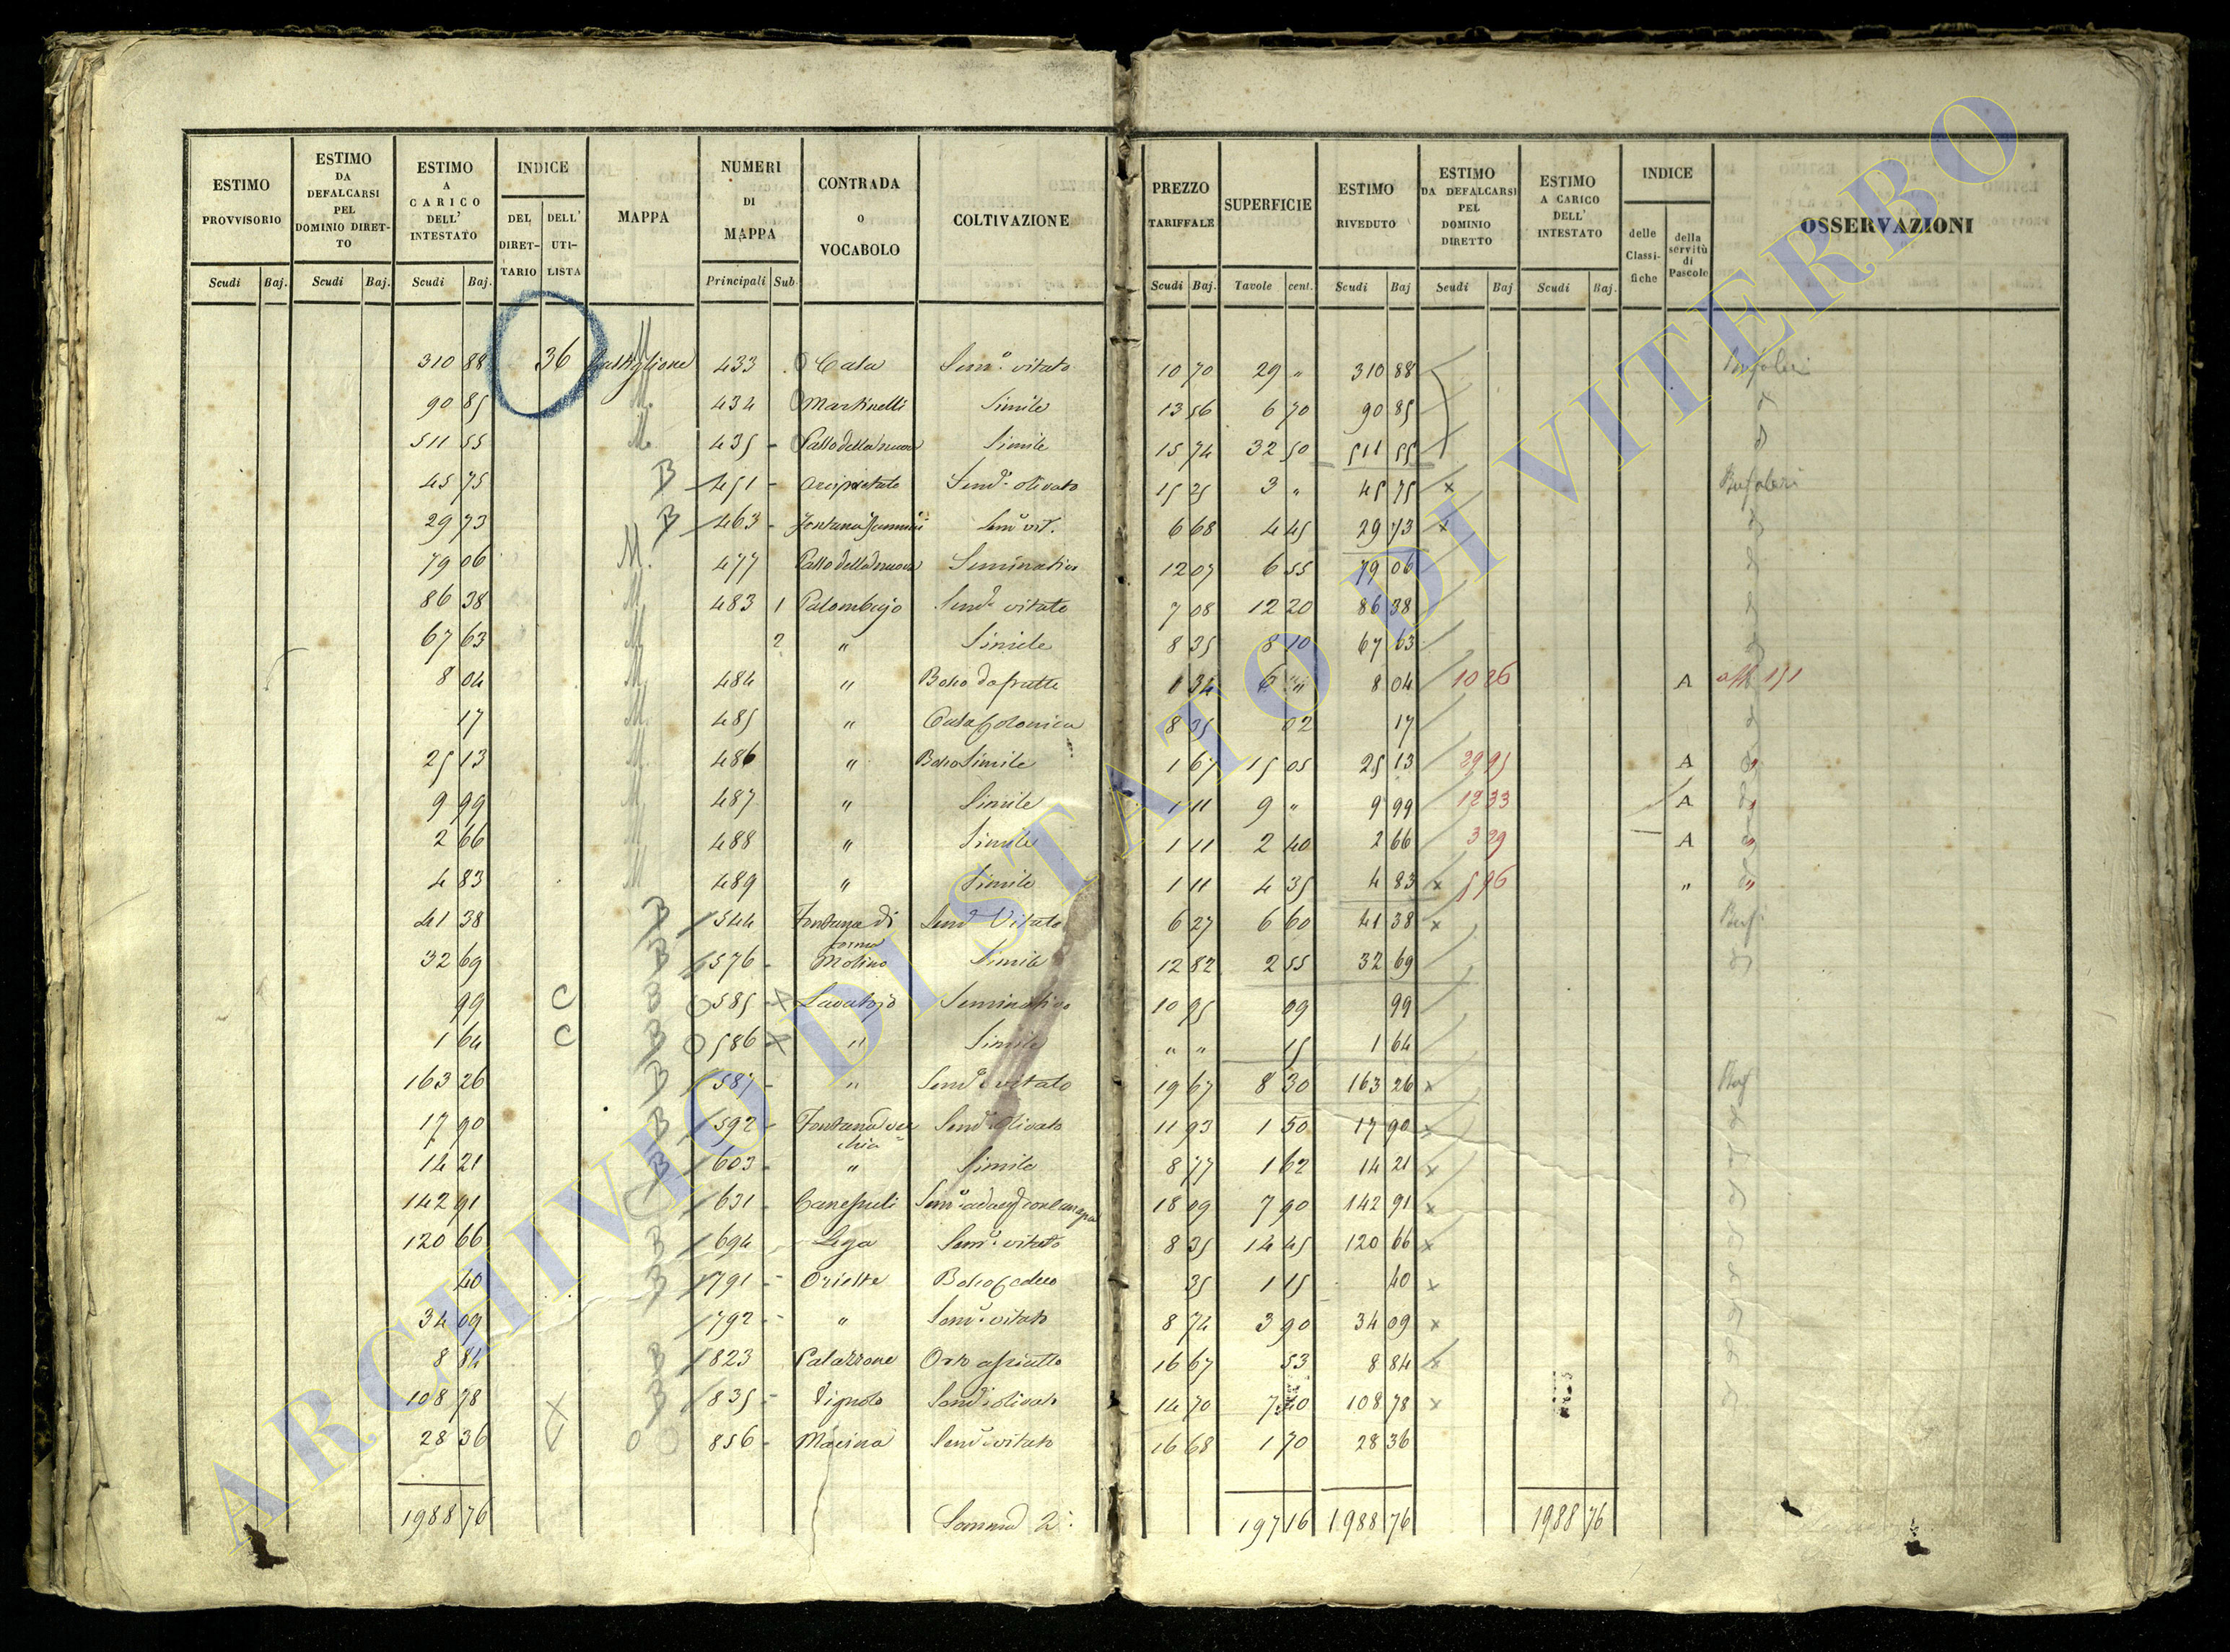 ESTIMO PROVVISORIO | ESTIMO DA DEFALCARSI PEL DOMINIO DIRETTO | ESTIMO A CARICO DELL' INTESTATO | INDICE DEL DIRETTARIO | DELL' UTILISTA | MAPPA | NUMERI DI MAPPA | CONTRADA O VOCABOLO | COLTIVAZIONE | PREZZO TARIFFALE | SUPERFICIE | ESTIMO RIVEDUTO | ESTIMO DA DEFALCARSI PEL DOMINIO DIRETTO | ESTIMO A CARICO DELL' INTESTATO | INDICE delle Classifiche | della servitù di Pascolo | OSSERVAZIONI
Scudi | Baj. | Scudi | Baj. | Scudi | Baj. | Principali | Sub. | Scudi | Baj. | Tavole | cent. | Scudi | Baj | Scudi | Baj | Scudi | Baj.
310 88 | 36 | Castiglione M | 433 | Casa | Semo. vitato | 10 70 | 29 " | 310 88 | Bufaleri
90 85 | M. | 434 | Martinelli | Simile | 13 56 | 6 70 | 90 85
511 55 | M | 435 - | Simile | 15 74 | 32 50 | 511 55
45 75 | B | 451 - | Arcipretato | Semo. olivato | 15 25 | 3 " | 45 75 | x | Bufaleri
29 73 | B | 463 - | Fontana | Semo vit. | 6 68 | 4 45 | 29 73 | x
79 06 | M. | 477 | Seminativo | 12 07 | 6 55 | 79 06
86 38 | M | 483 | 1 | Palombajo | Semo. vitato | 7 08 | 12 20 | 86 38
67 63 | M | 2 | " | Simile | 8 35 | 8 10 | 67 63
8 04 | M | 484 | " | Bosco da frutto | 1 34 | 6 " | 8 04 | 10 26 | A | 151
17 | M. | 485 | " | Casa Colonica | 8 35 | 02 | 17
25 13 | M. | 486 | " | Bosco Simile | 1 67 | 15 05 | 25 13 | 29 95 | A
9 99 | M | 487 | " | Simile | 1 11 | 9 " | 9 99 | 12 33 | A
2 66 | M | 488 | " | Simile | 1 11 | 2 40 | 2 66 | 3 29 | A
4 83 | M | 489 | " | Simile | 1 11 | 4 35 | 4 83 | x | 5 96 | "
41 38 | B | 544 | Fontana di | Semo Vitato | 6 27 | 6 60 | 41 38 | x
32 69 | B | 576 - | Molino | Simile | 12 82 | 2 55 | 32 69
99 | C | B | 585 - x | Lavatojo | Seminativo | 10 95 | 09 | 99
1 64 | C | B | 586 - x | " | Simile | " " | 15 | 1 64
163 26 | B | 587 - | " | Semo. vitato | 19 67 | 8 30 | 163 26 | x
17 90 | B | 592 - | Fontana Vecchia | Semo. Olivato | 11 93 | 1 50 | 17 90 | x
14 21 | B | 603 - | " | Simile | 8 77 | 1 62 | 14 21 | x
142 91 | 631 - | 18 09 | 7 90 | 142 91 | x
120 66 | B | 694 | Lega | Semo. vitato | 8 35 | 14 45 | 120 66 | x
40 | B | 791 - | Oriette | Bosco Ceduo | 35 | 1 15 | 40 | x
34 09 | 792 - | " | Semo. vitato | 8 74 | 3 90 | 34 09 | x
8 84 | B | 823 | Palazzone | Orto asciutto | 16 67 | 53 | 8 84 | x
108 78 | x | B | 835 - | Vignolo | Semo. olivato | 14 70 | 7 40 | 108 78 | x
28 36 | 0 | 856 - | Macina | Semo. vitato | 16 68 | 1 70 | 28 36
1988 76 | Somma | 197 16 | 1988 76 | 1988 76
ARCHIVIO DI STATO DI VITERBO